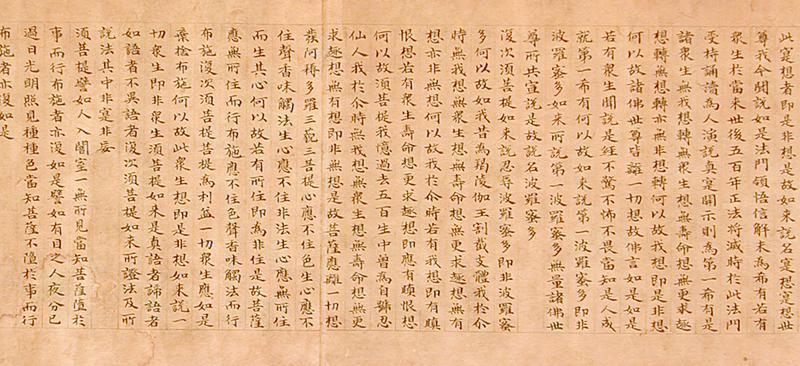 此寔想者即是非想故如來說名寔想寔想世
尊我今聞說如是法門領悟信解未為希有若有
衆生於當來世後五百年正法將滅時於此法門
受持誦讀為人演說真寔開示則為第一希有是
諸衆生無我想轉無衆生想無壽命想無更求趣
想轉無想轉亦無非想轉何以故我想即是非想
何以故諸佛世尊皆離一切想故佛言如是如是
若有衆生聞說是經不驚不怖不畏當知是人成
就第一希有何以故如來說第一波羅蜜多即非
波羅蜜多如來所說第一波羅蜜多無量諸佛世
尊所共宣說是故說名波羅蜜多
復次須菩提如來說忍辱波羅蜜多即非波羅蜜
多何以故如我昔為羯陵伽王割截支體我於尒
時無我想無衆生想無壽命想無更求趣想無有
想亦非無想何以故我於尒時若有我想即有瞋
恨想若有衆生壽命想更求趣想即應有瞋恨想
何以故須菩提我憶過去五百生中曾為自號忍
仙人我於尒時無我想無衆生想無壽命想無更
求趣想無有想即非無想是故菩薩應離一切想
發阿耨多羅三藐三菩提心應不住色生心應不
住聲香味觸法生心應不住非法生心應無所住
而生其心何以故若有所住即為非住是故菩薩
應無所住而行布施應不住色聲香味觸法而行
布施復次須菩提菩提為利益一切衆生應如是
棄捨布施何以故此衆生想即是非想如來說一
切衆生即非衆生須菩提如來是真語者諦語者
如語者不異語者復次須菩提如來所證法及所
說法其中非寔非妄
須菩提譬如人入闇室一無所見當知菩薩墮於
事而行布施者亦復如是譬如有目之人夜分已
過日光明照見種種色當知菩薩不墮於事而行
布施者亦復如是